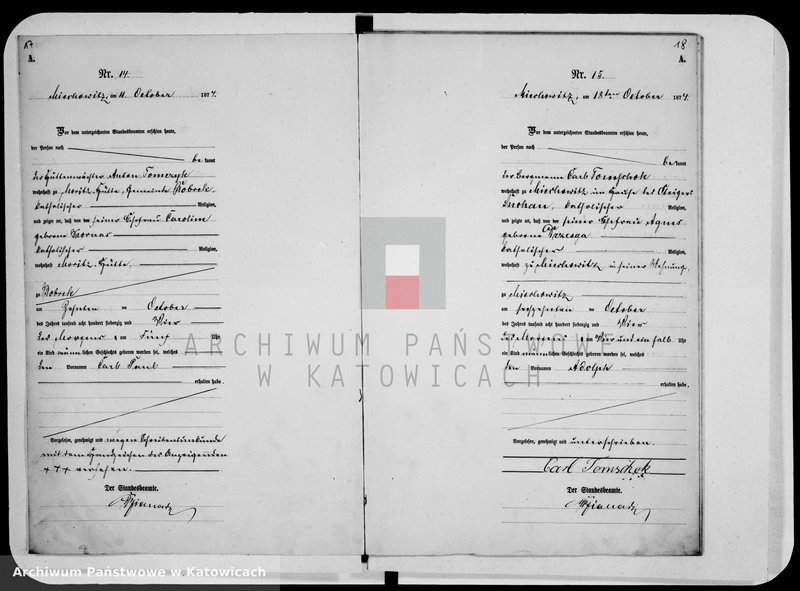 17
A.
Nr. 14.
Miechowitz, am 11. October 1874.
Vor dem unterzeichneten Standesbeamten erschien heute,
der Person nach
be kannt
der Hüttenwächter Anton Tomczyk
wohnhaft zu Moritz-Hütte, Gemeinde Bobrek,
katholischer Religion,
und zeigte an, daß von der seiner Ehefrau Caroline
geborene
katholischer Religion,
wohnhaft Moritz-Hütte,
zu Bobrek
am Zehnten October
des Jahres tausend acht hundert siebenzig und Vier
des Morgens um Fünf Uhr
ein Kind männlichen Geschlechts geboren worden sei, welches
den Vornamen Carl Paul
erhalten habe.
Vorgelesen, genehmigt und wegen Schreibensunkunde
mit dem Handzeichen des Anzeigenden
+++ versehen.
Der Standesbeamte.
18
A.
Nr. 15.
Miechowitz, am 18ten October 1874.
Vor dem unterzeichneten Standesbeamten erschien heute,
der Person nach
be kannt
der Bergmann Carl Tomschek
wohnhaft zu Miechowitz im Hause des Steigers
katholischer Religion,
und zeigte an, daß von der seiner Ehefrau Agnes
geborene
katholischer Religion,
wohnhaft zu Miechowitz in seiner Wohnung,
zu Miechowitz
am sechzehnten October
des Jahres tausend acht hundert siebenzig und Vier
des Morgens um Vier und ein halb Uhr
ein Kind männlichen Geschlechts geboren worden sei, welches
den Vornamen Adolph
erhalten habe.
Vorgelesen, genehmigt und unterschrieben.
Carl Tomschek
Der Standesbeamte.
ARCHIWUM PAŃSTWOWE
W KATOWICACH
Archiwum Państwowe w Katowicach